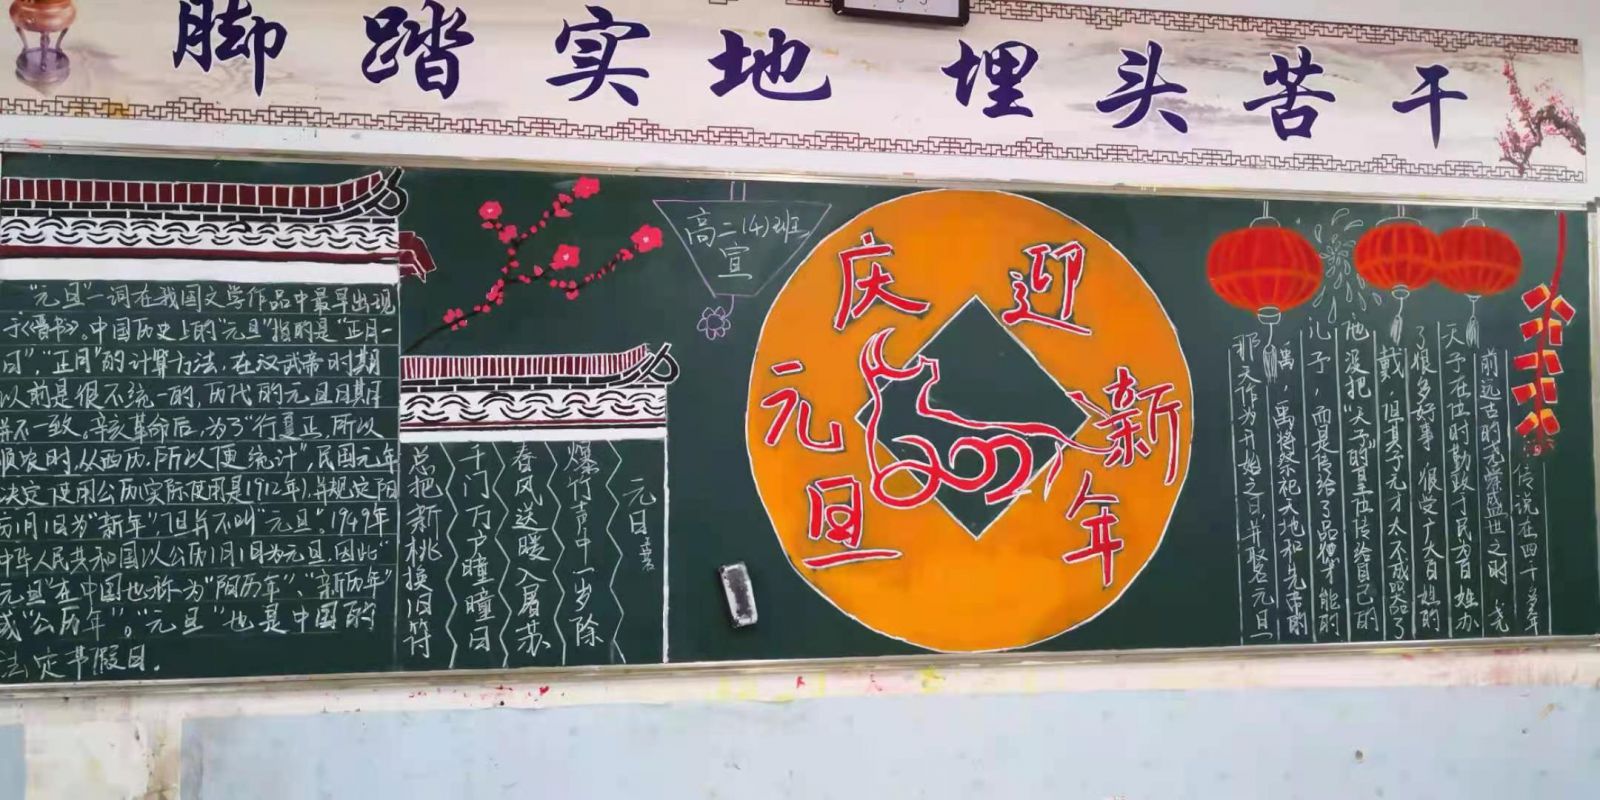 脚踏实地 埋头苦干
“元旦”一词在我国文学作品中最早出现
于《晋书》。中国历史上的“元旦”指的是“正月一
日”,“正月”的计算方法,在汉武帝时期
以前是很不统一的,历代的元旦日期
并不一致。辛亥革命后,为了“行夏正,所以
顺农时,从西历,所以便统计”,民国元年
决定使用公历(实际使用是1912年),并规定阳
历1月1日为“新年”,但并不叫“元旦”。1949年
中华人民共和国以公历1月1日为元旦,因此“
元旦”在中国也称为“阳历年”、“新历年”
或“公历年”。“元旦”也是中国的
法定节假日。
元日
爆竹声中一岁除
春风送暖入屠苏
千门万户曈曈日
总把新桃换旧符
高二(4)班
宣
庆元旦
迎新年
2021
传说在四千多年
前远古的尧舜盛世之时,尧
天子在位时勤政于民为百姓办
了很多好事 很受广大百姓的
戴,但其子无才太不成器了
他没把“天子”的皇位传给自己的
儿子,而是传给了品德才能的
禹,禹将祭祀天地和先帝的
那天作为开始之日,并取名元旦